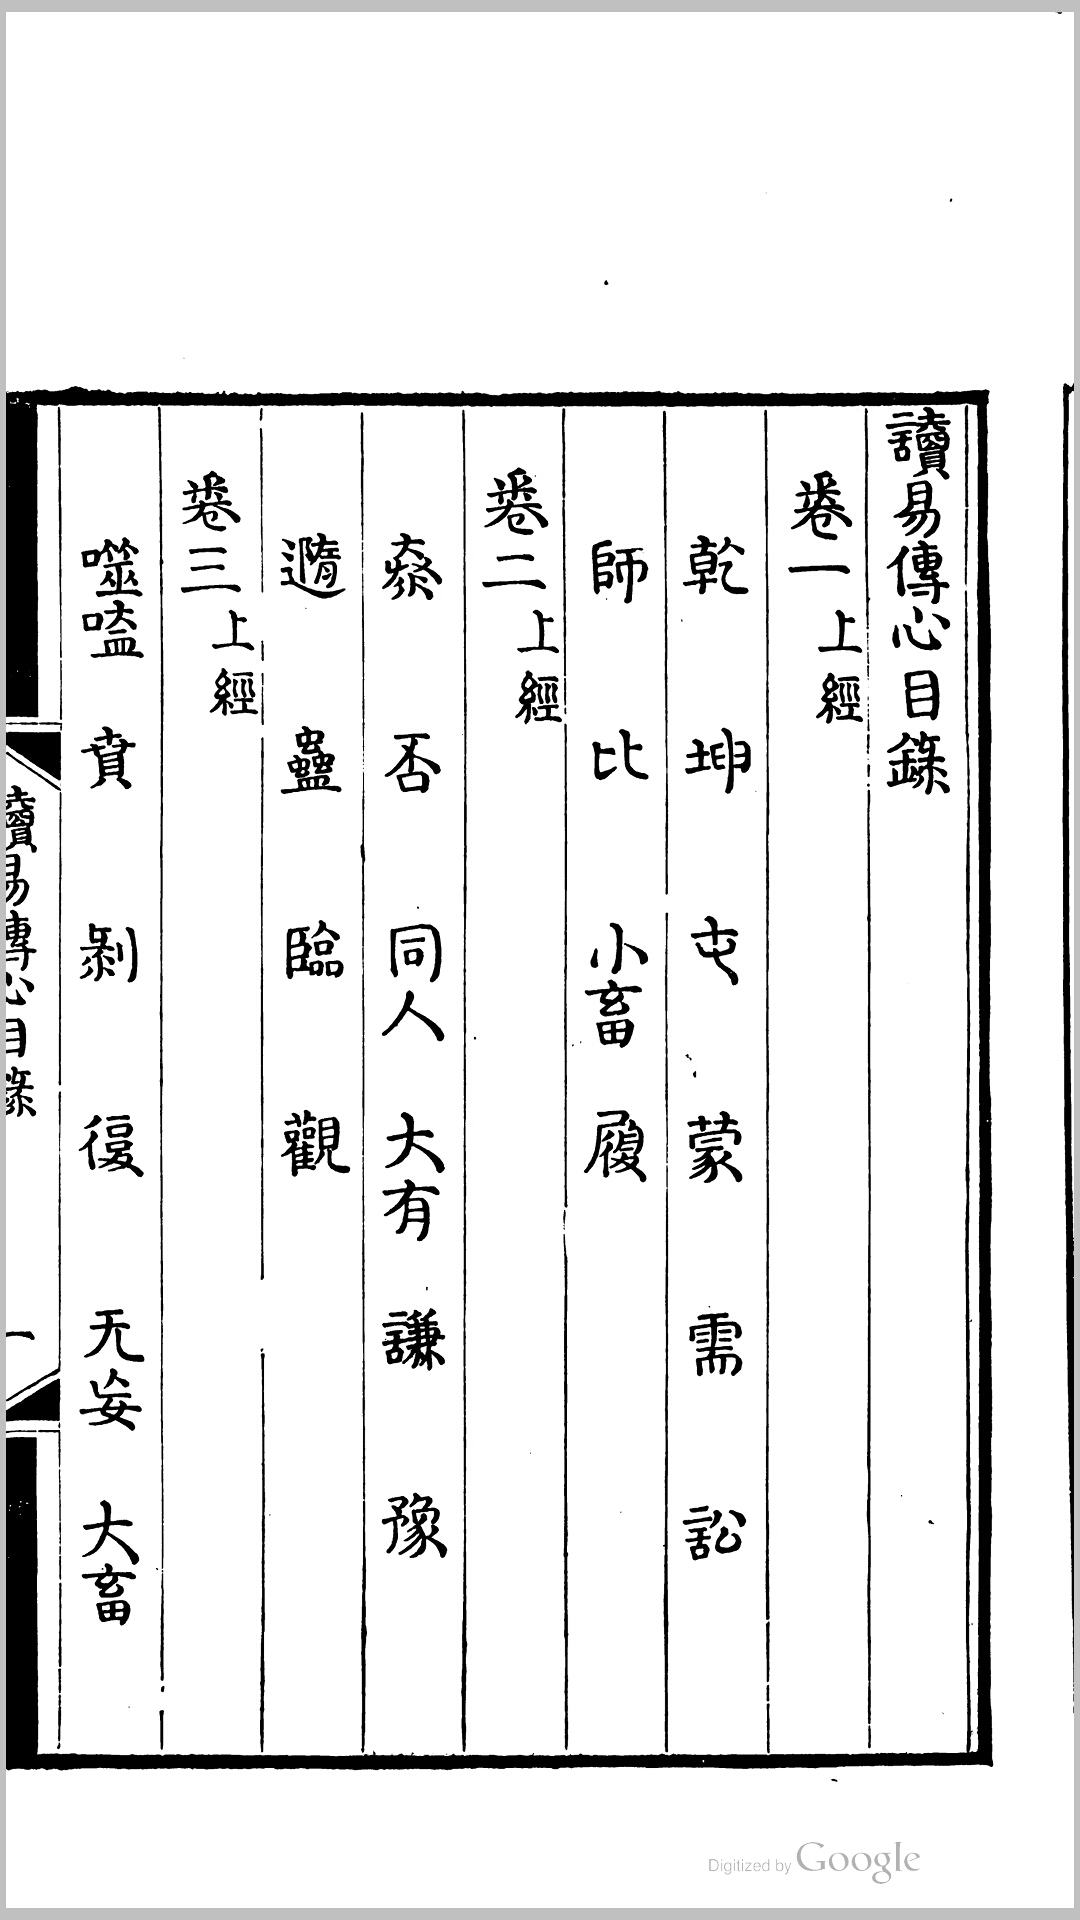 讀易傳心目錄
卷一上經
乾 坤 屯 蒙 需 訟
師 比 小畜 履
卷二上經
泰 否 同人 大有 謙 豫
隨 蠱 臨 觀
卷三上經
噬嗑 賁 剝 復 无妄 大畜
讀易傳心目錄 一
Digitized by Google